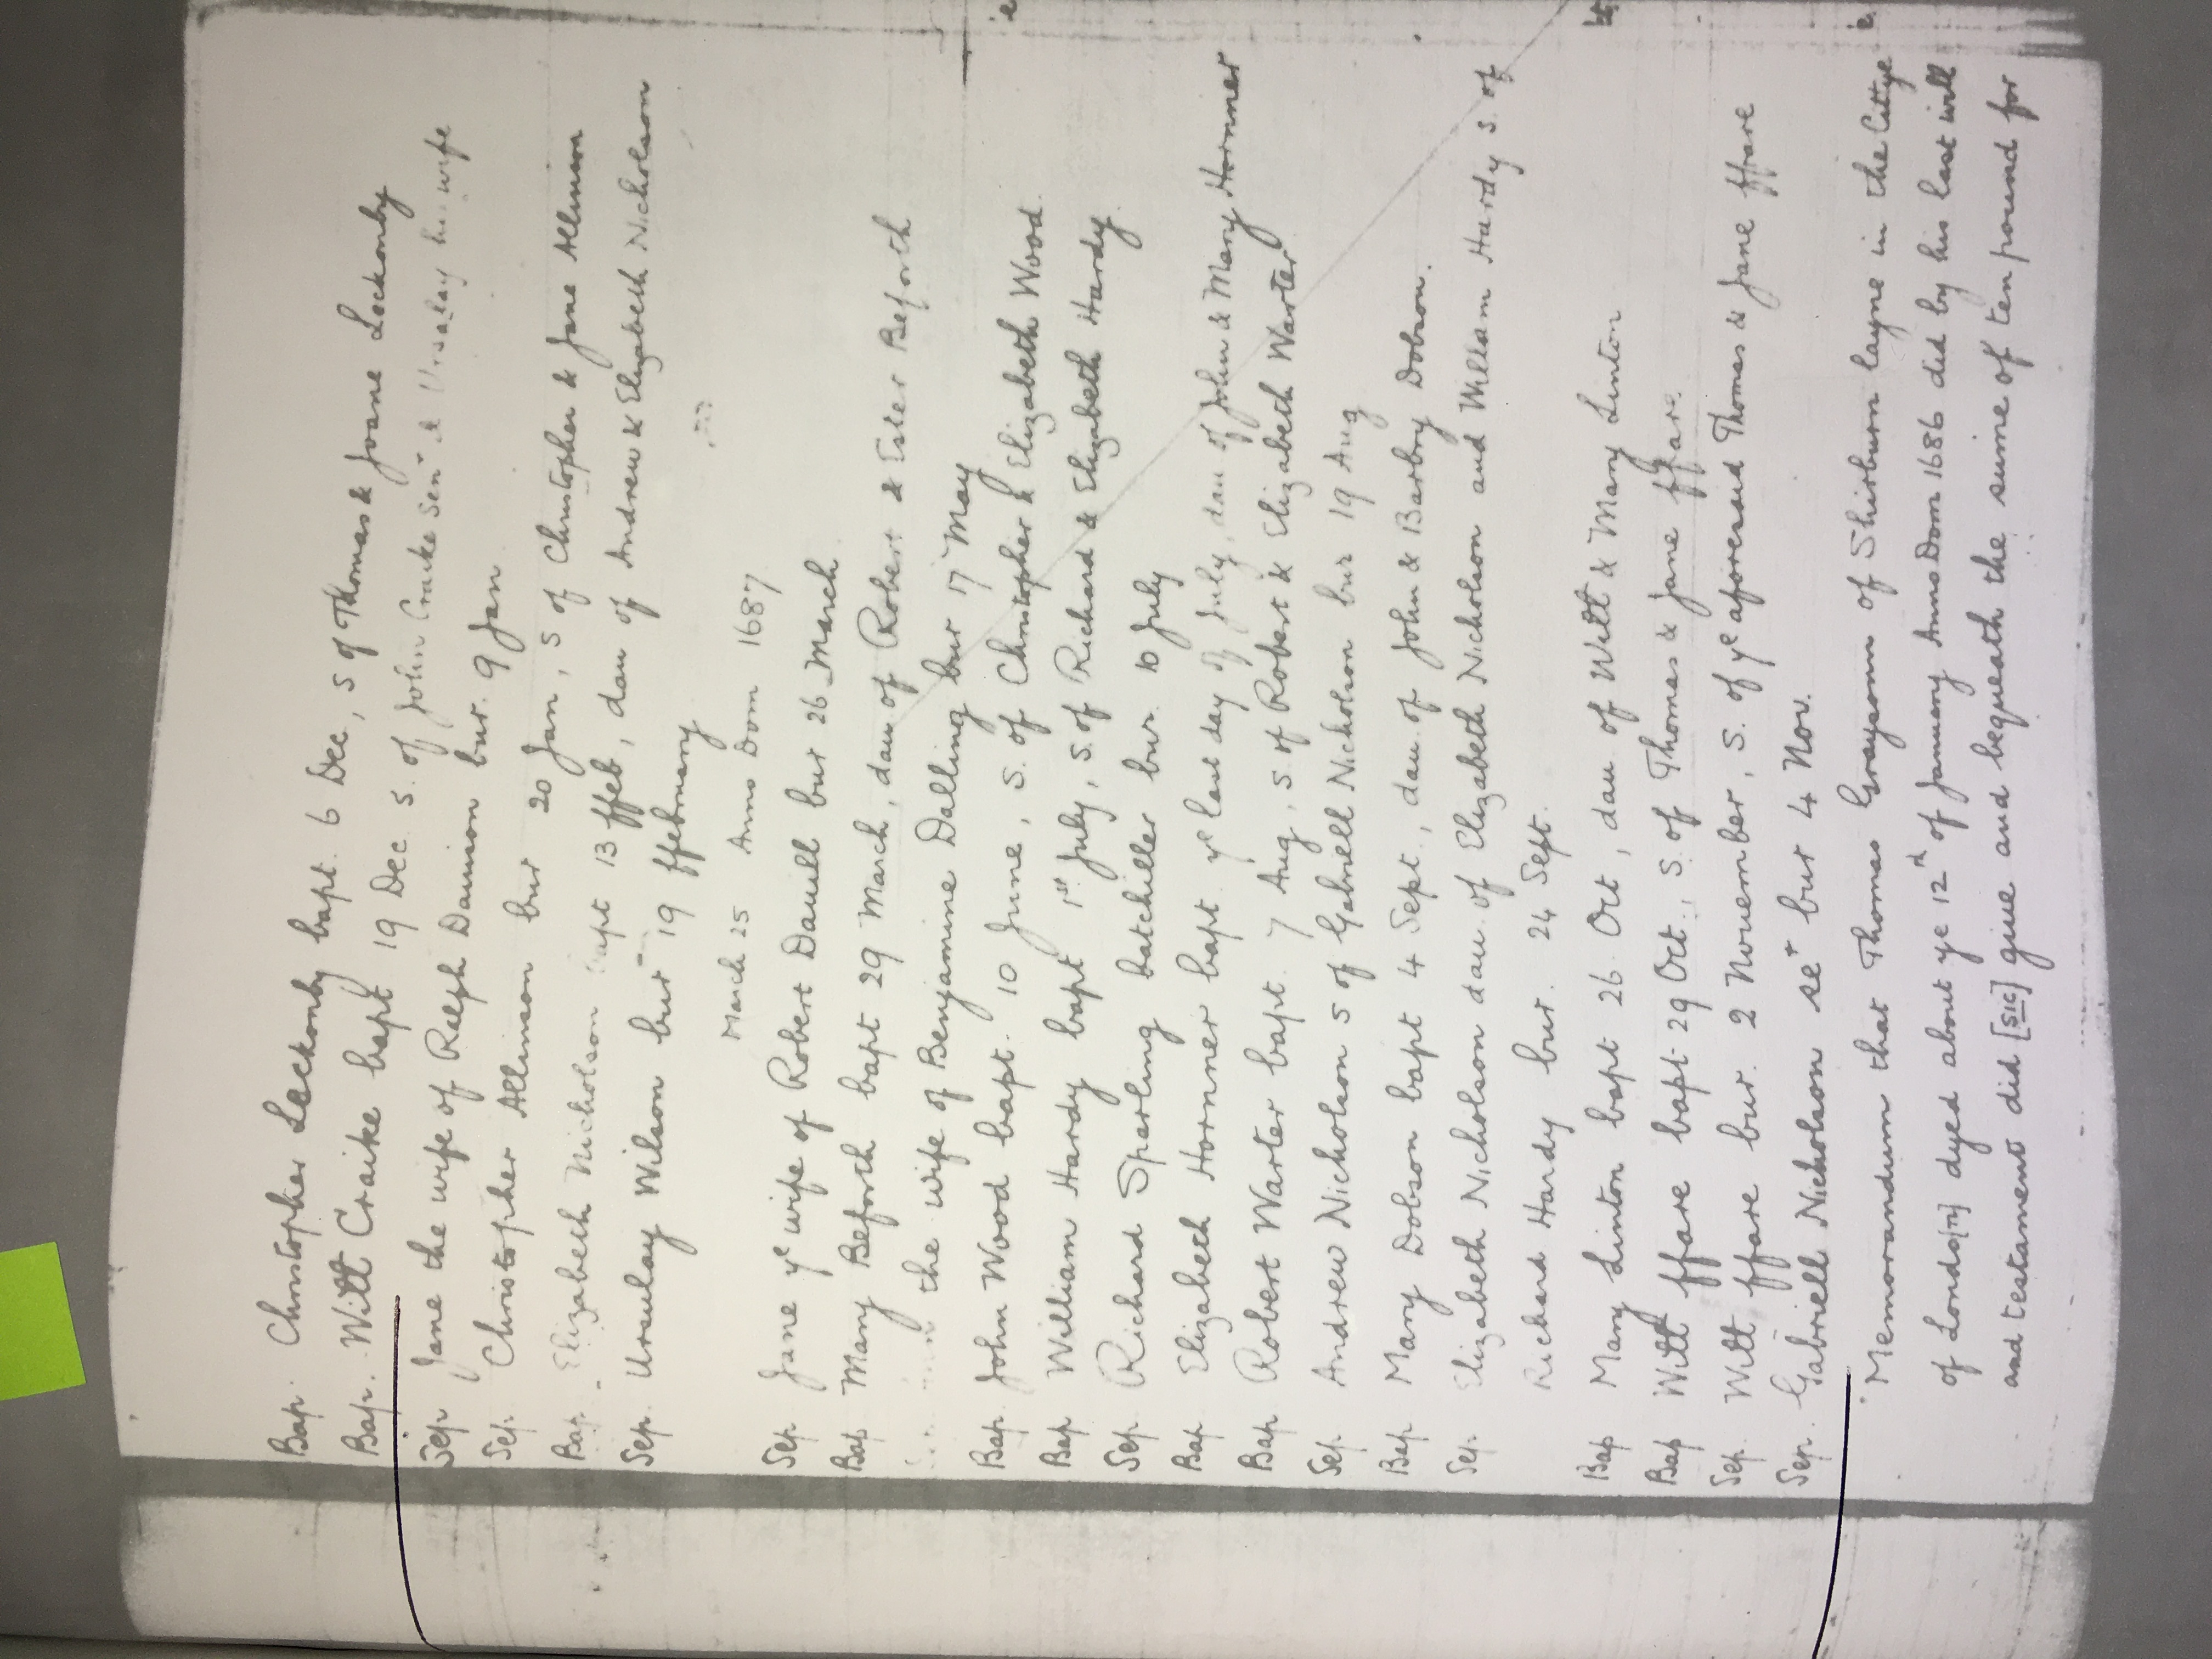 Bap. Christopher Leckonby bapt. 6 Dec, s of Thomas & Joane Leckonby
Bap. Witt Craike bapt 19 Dec s. of John Craike Senr & Ursulay his wife
Sep. Jane the wife of Ralph Dawson bur. 9 Jan
Sep. Christopher Allinson bur 20 Jan, s of Christopher & Jane Allinson
Bap. Elizabeth Nicholson bapt 13 ffeb, dau of Andrew & Elizabeth Nicholson
Sep. Ursulay Wilson bur 19 ffebruary
March 25 Anno Dom 1687
Sep. Jane ye wife of Robert Dauill bur 26 March
Bap Mary Beforth bapt 29 March, dau of Robert & Ester Beforth
the wife of Benjamine Dalling bur 17 May
Bap. John Wood bapt. 10 June, s. of Christopher & Elizabeth Wood.
Bap William Hardy bapt 1st July, s. of Richard & Elizabeth Hardy
Sep. Richard Sparling batchiller bur. 10 July
Bap Elizabeth Hornner bapt. ye last day of July, dau of John & Mary Hornner
Bap Robert Warter bapt. 7 Aug, s of Robert & Elizabeth Warter
Sep. Andrew Nicholson s of Gabriell Nicholson bur 19 Aug
Bap. Mary Dobson bapt 4 Sept, dau. of John & Barbry Dobson.
Sep. Elizabeth Nicholson dau. of Elizabeth Nicholson and William Hardy s. of
Richard Hardy bur. 24 Sept.
Bap Mary Linton bapt 26 Oct, dau of Witt & Mary Linton
Bap Witt ffare bapt 29 Oct., s. of Thomas & Jane ffare.
Sep. Witt ffare bur. 2 Nouember, s. of ye aforesaid Thomas & Jane ffare
Sep. Gabriell Nicholson ser bur 4 Nov.
Memorandum that Thomas Graysonn of Shirburn layne in the Cittye
of Londo[n] dyed about ye 12d of January Anno Dom 1686 did by his last will
and testament did [sic] giue and bequeath the sume of ten pound for